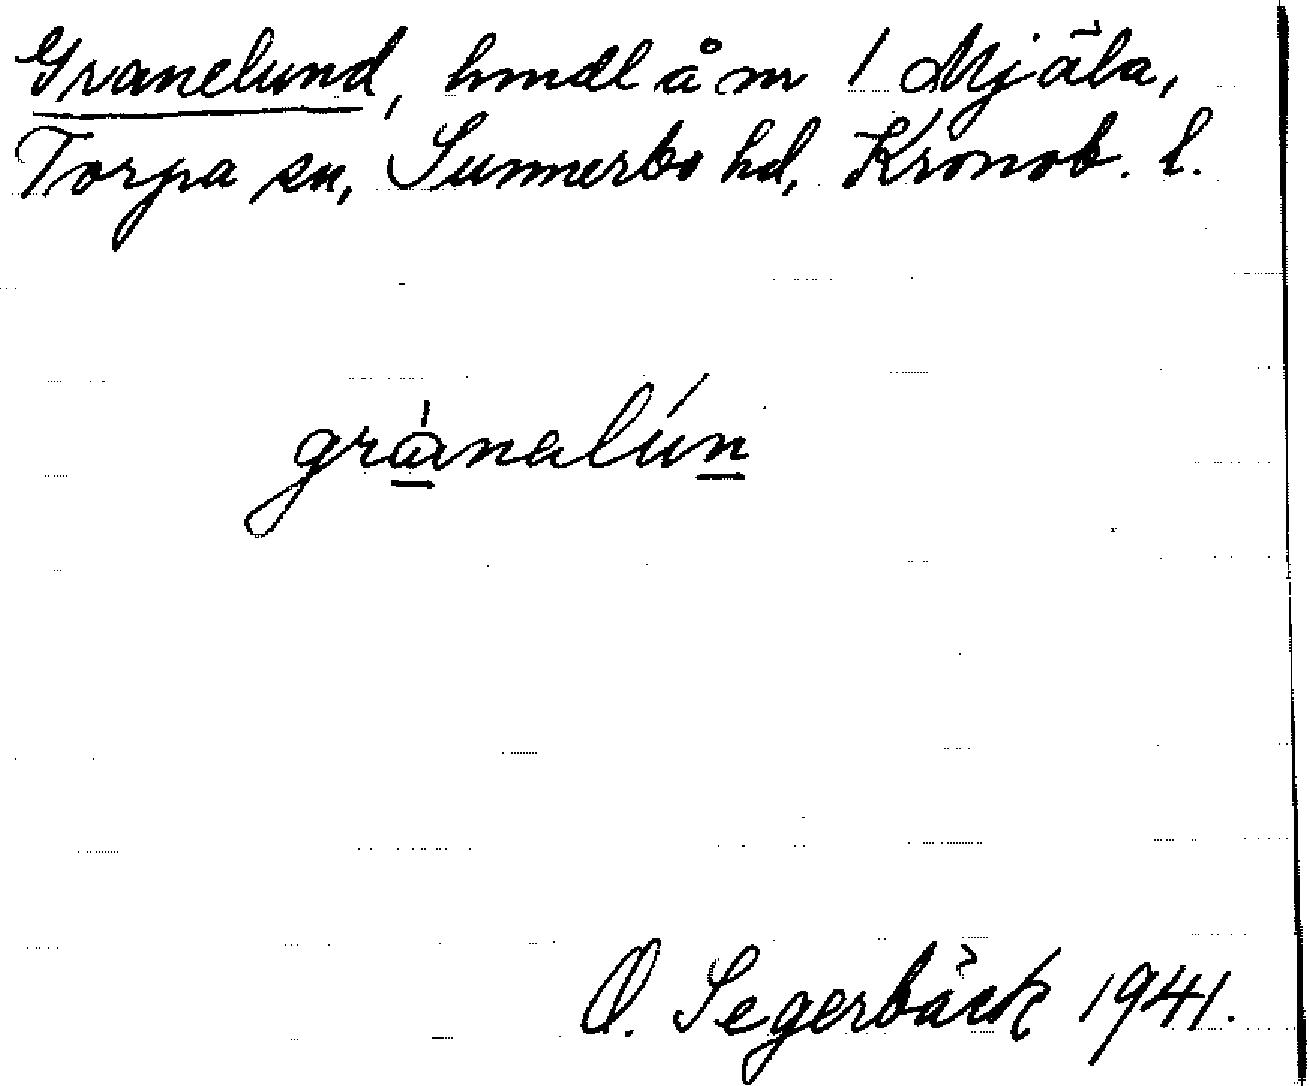 Granelund, hmdl å nr 1 Mjäla,
Torpa sn, Sunnerbo hd, Kronob. l.
grànalún
O. Segerbäck 1941.